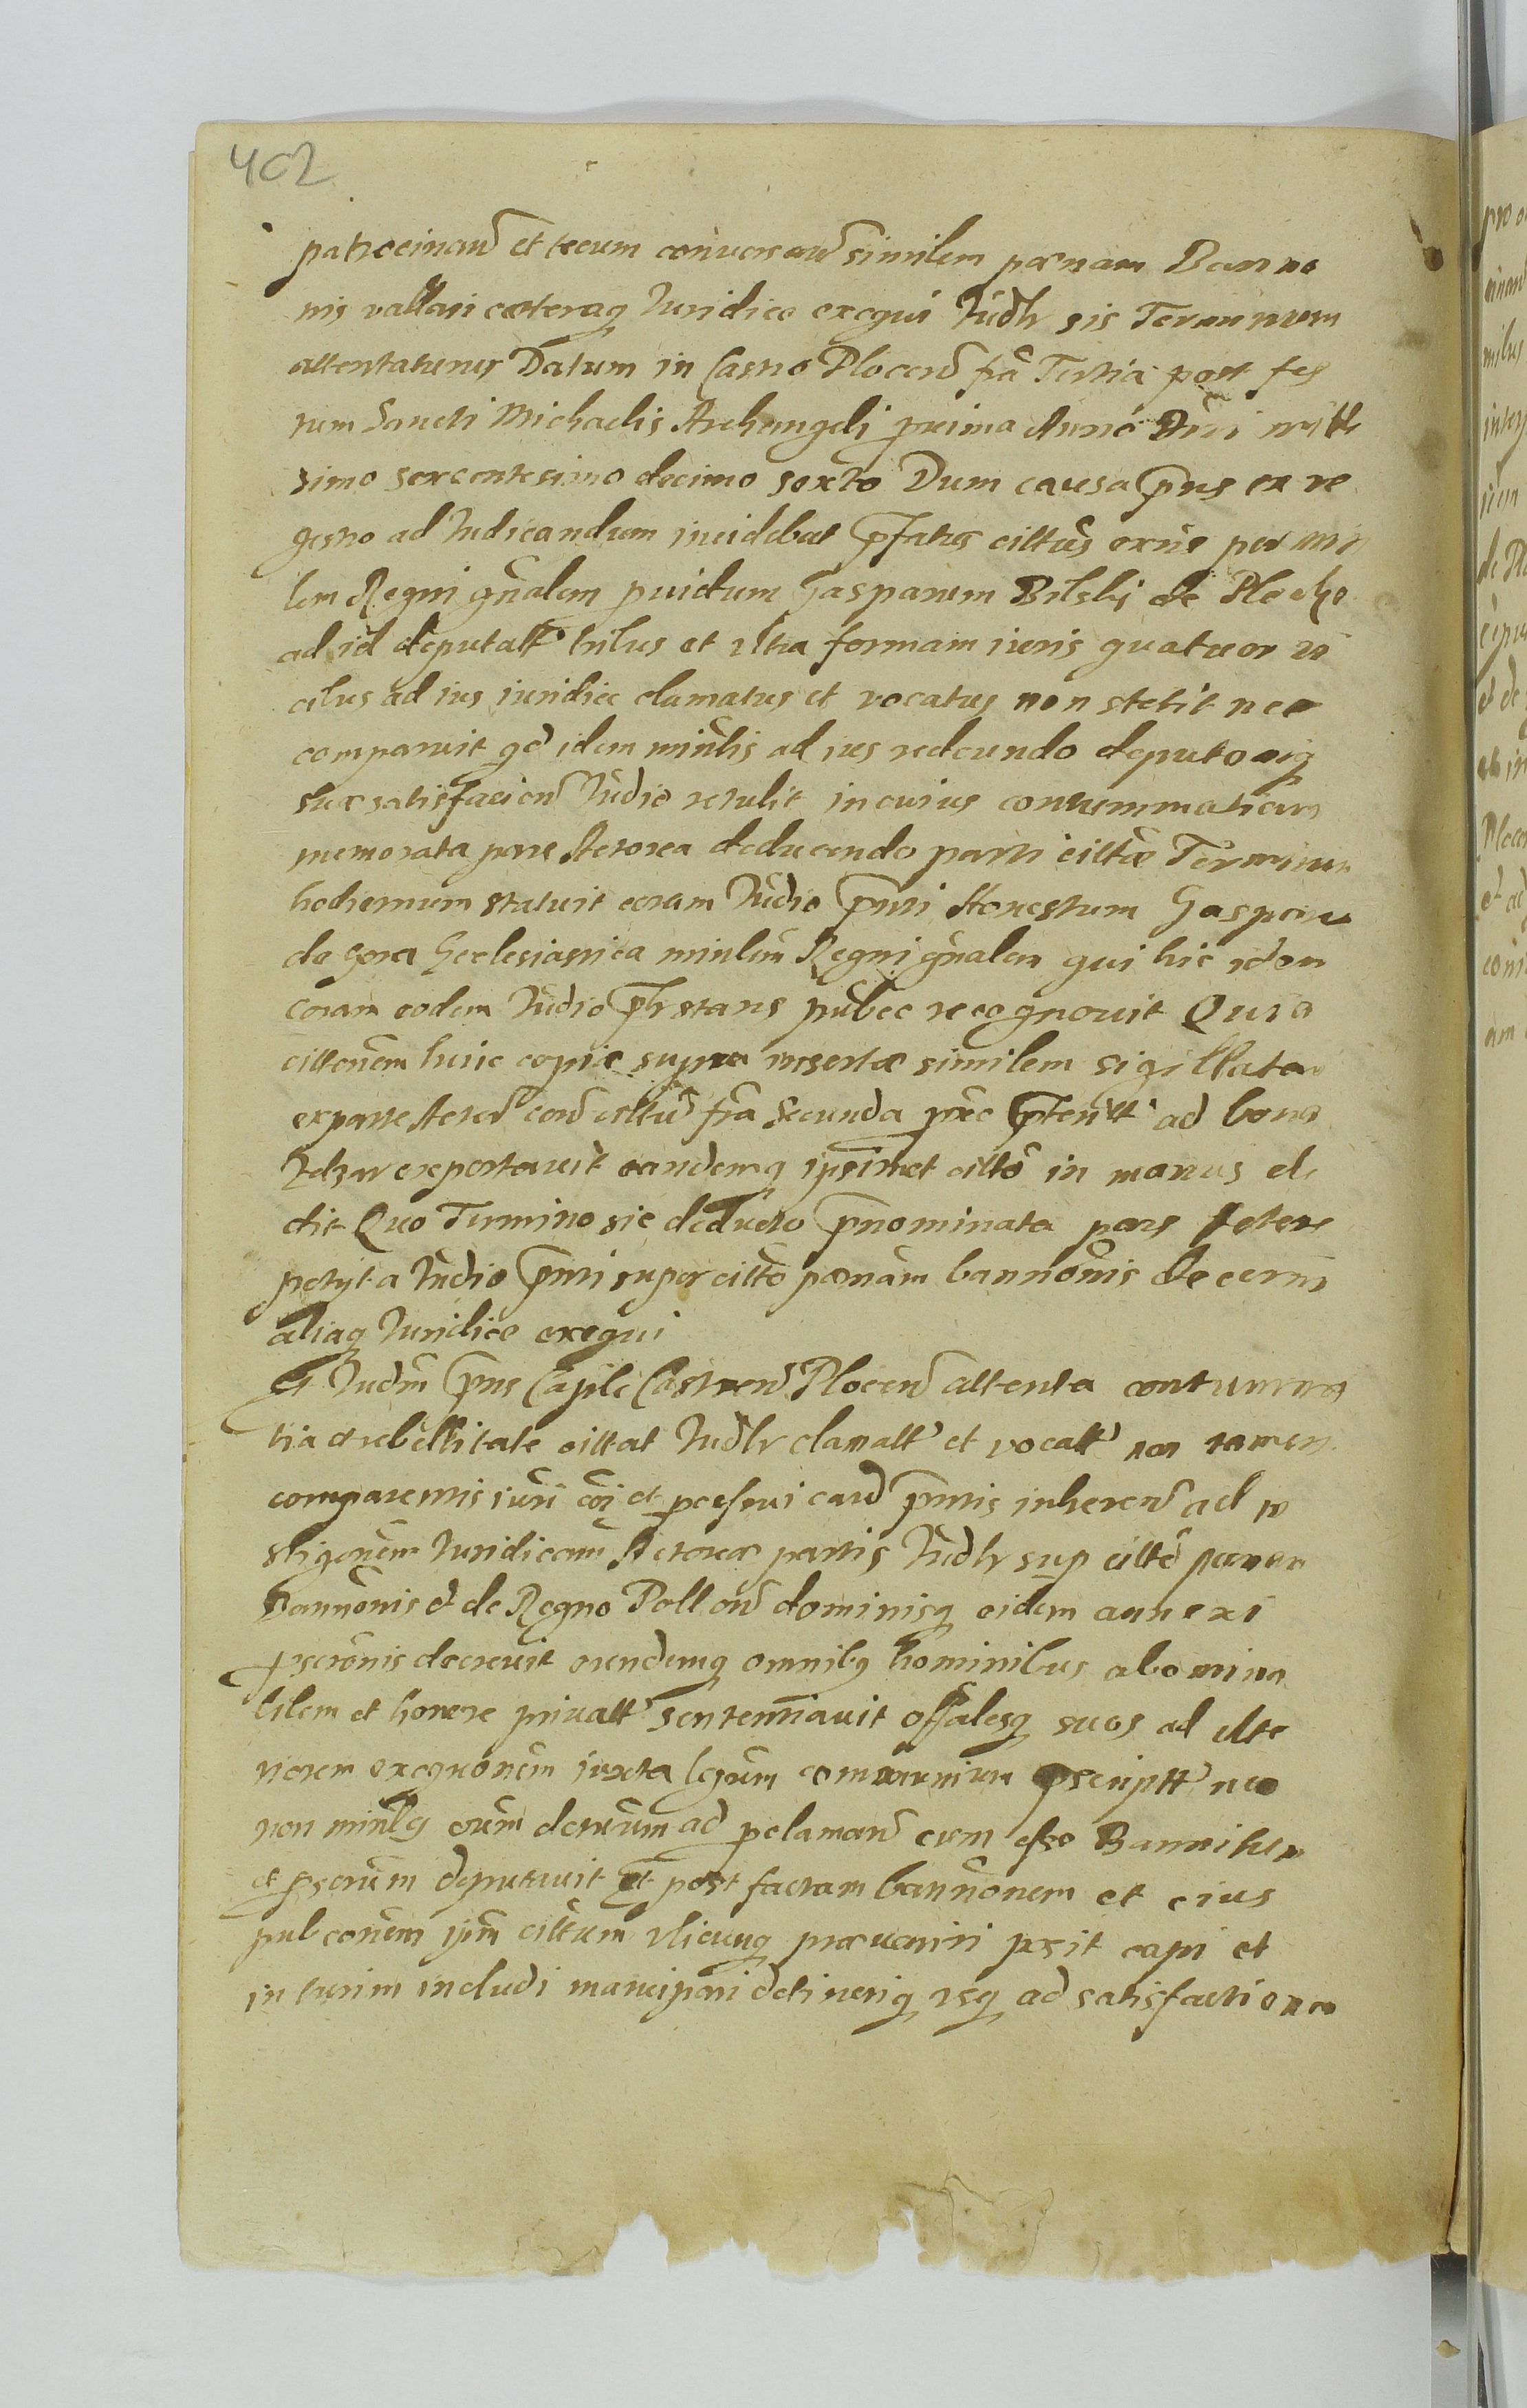 402
patrocinan̄ et tecum conuersan̄ similem pœnam Banno
nis vallari cæteraq Iuridice exequi Iudlr sis Terminum
attentaturus Datum in Castro Plocen̄ fr̄a Tertia post fes
tum Sancti Michaelis Archangeli proxima Anno Dn̄i mille
simo sexcentesimo decimo sexto Dum causa p̄ns ex re
gestro ad Iudicandum incidebat p̄fatus cittus extitit per min
lem Regni gn̄alem prouidum Gasparum Bilski de Plecke
ad id deputatt tribus et vltra formam iuris quatuor vi
cibus ad ius iuridice clamatus et vocatus non stetit nec
comparuit qd̄ idem minlis ad ius redeundo deputoniq
suæ satisfacien̄ Iudio retulit in cuius contummatiam
memorata pars Actorea deducendo parti cittæ Terminum
hodiernum statuit coram Iudio p̄nti Honestum Gasparum
de Gora Ecclesiastica minlem Regni gn̄alem qui hic idem
coram eodem Iudio p̄lr stans publce recognouit Quia
cittonem huic copiæ supra insertæ similem sigillatam
ex parte Actor̄ con̄ citturn̄ fr̄a Secunda p̄teritt ad bona
reportauit eandemq ipsimet citto in manus de
dit Quo Termino sic deducto p̄nominata pars Actorea
petijt a Iudio p̄nti super citto pœnam bannonis decerni
aliaq Iuridice exequi
Et Iudm̄ p̄ns Caplē Castren̄ Plocen̄ attenta contumma
tia et rebellitate cittat Iudlr clamatt et vocatt non tamen
comparentis iuri coi et p̄missis inheren̄ ad in
stigonem Iuridicam Actoreæ partis Iudlr sup citto pœnam
bannonis et de Regno Pollon̄ dominisq eidem annexi
pscronis decreuit eundemq omnibq hominibus abomina
bilem et honore priuatt sententiauit offalesq suos ad vlte
riorem exequonem iuxta legum communium pscriptt nec
non minlq eorum deruum ad pclamand̄ eum esse Bannitum
et pscrum deputauit Et post factam bannonem et eius
publconem ipm̄ cittum vbicunq præueniri psit capi et
in turrim includi mancipari detineriq vsq ad satisfactionem